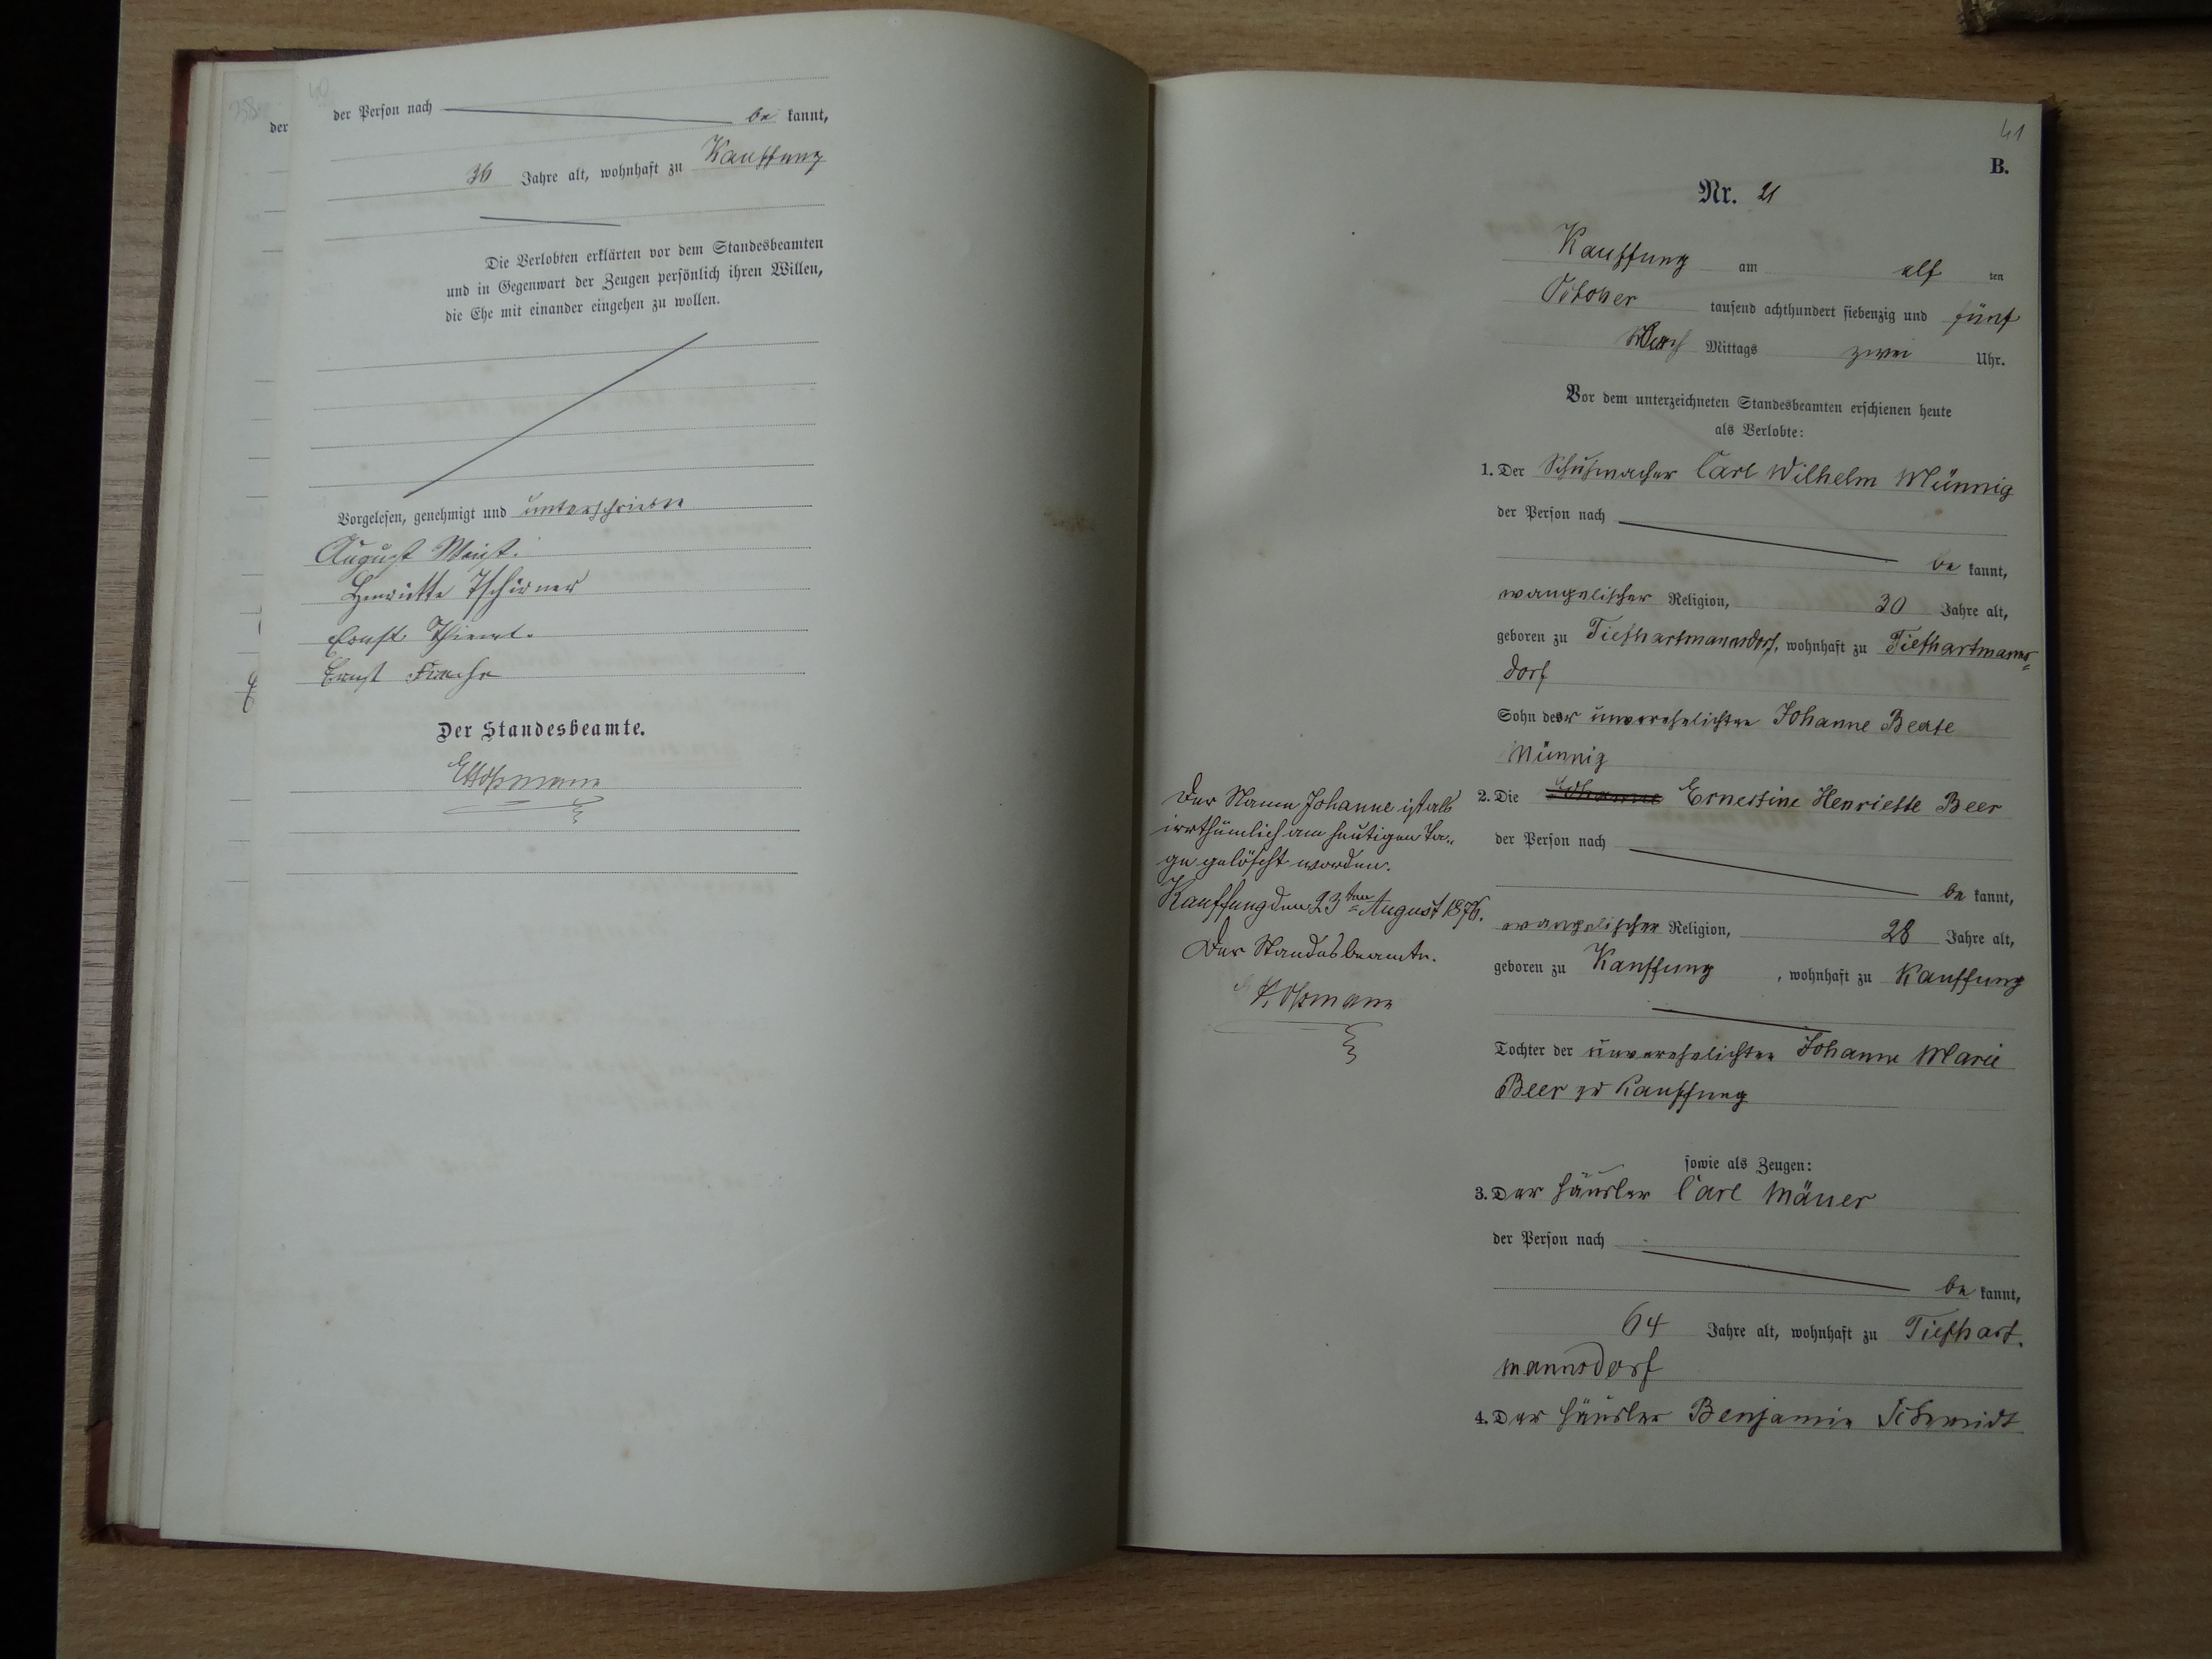 40
38
der
der Person nach be kannt,
36 Jahre alt, wohnhaft zu Kauffung
Die Verlobten erklärten vor dem Standesbeamten
und in Gegenwart der Zeugen persönlich ihren Willen,
die Ehe mit einander eingehen zu wollen.
Vorgelesen, genehmigt und unterschrieben
August
Henriette Tschirner
Ernst
Ernst
Der Standesbeamte.
41
B.
Nr. 21
Kauffung am elf ten
October tausend achthundert siebenzig und fünf
Nach Mittags zwei Uhr.
Vor dem unterzeichneten Standesbeamten erschienen heute
als Verlobte:
1. Der Schuhmacher Carl Wilhelm Münnig
der Person nach
be kannt,
evangelischer Religion, 30 Jahre alt,
geboren zu Tiefhartmannsdorf, wohnhaft zu Tiefhartmanns-
dorf
Sohn der unverehelichten Johanne Beate
Münnig
2. Die Johanne Ernestine Henriette Beer
der Person nach
be kannt,
evangelischer Religion, 28 Jahre alt,
geboren zu Kauffung, wohnhaft zu Kauffung
Tochter der unverehelichten Johanne Marie
Beer zu Kauffung
Der Name Johanne ist als
irrthümlich am heutigen Ta-
ge gelöscht worden.
Kauffung den 23ten August 1876.
Der Standesbeamte.
sowie als Zeugen:
3. Der Häusler Carl Mäuer
der Person nach
be kannt,
64 Jahre alt, wohnhaft zu Tiefhart-
mannsdorf
4. Der Häusler Benjamin Schmidt